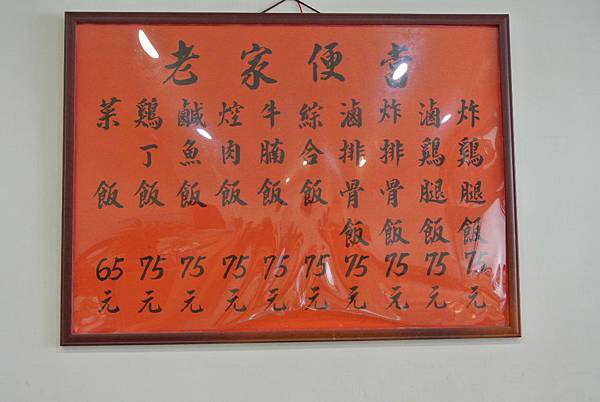 老家便當
炸鷄腿飯75元
滷鷄腿飯75元
炸排骨飯75元
滷排骨飯75元
綜合飯75元
牛腩飯75元
焢肉飯75元
鹹魚飯75元
鷄丁飯75元
菜飯65元